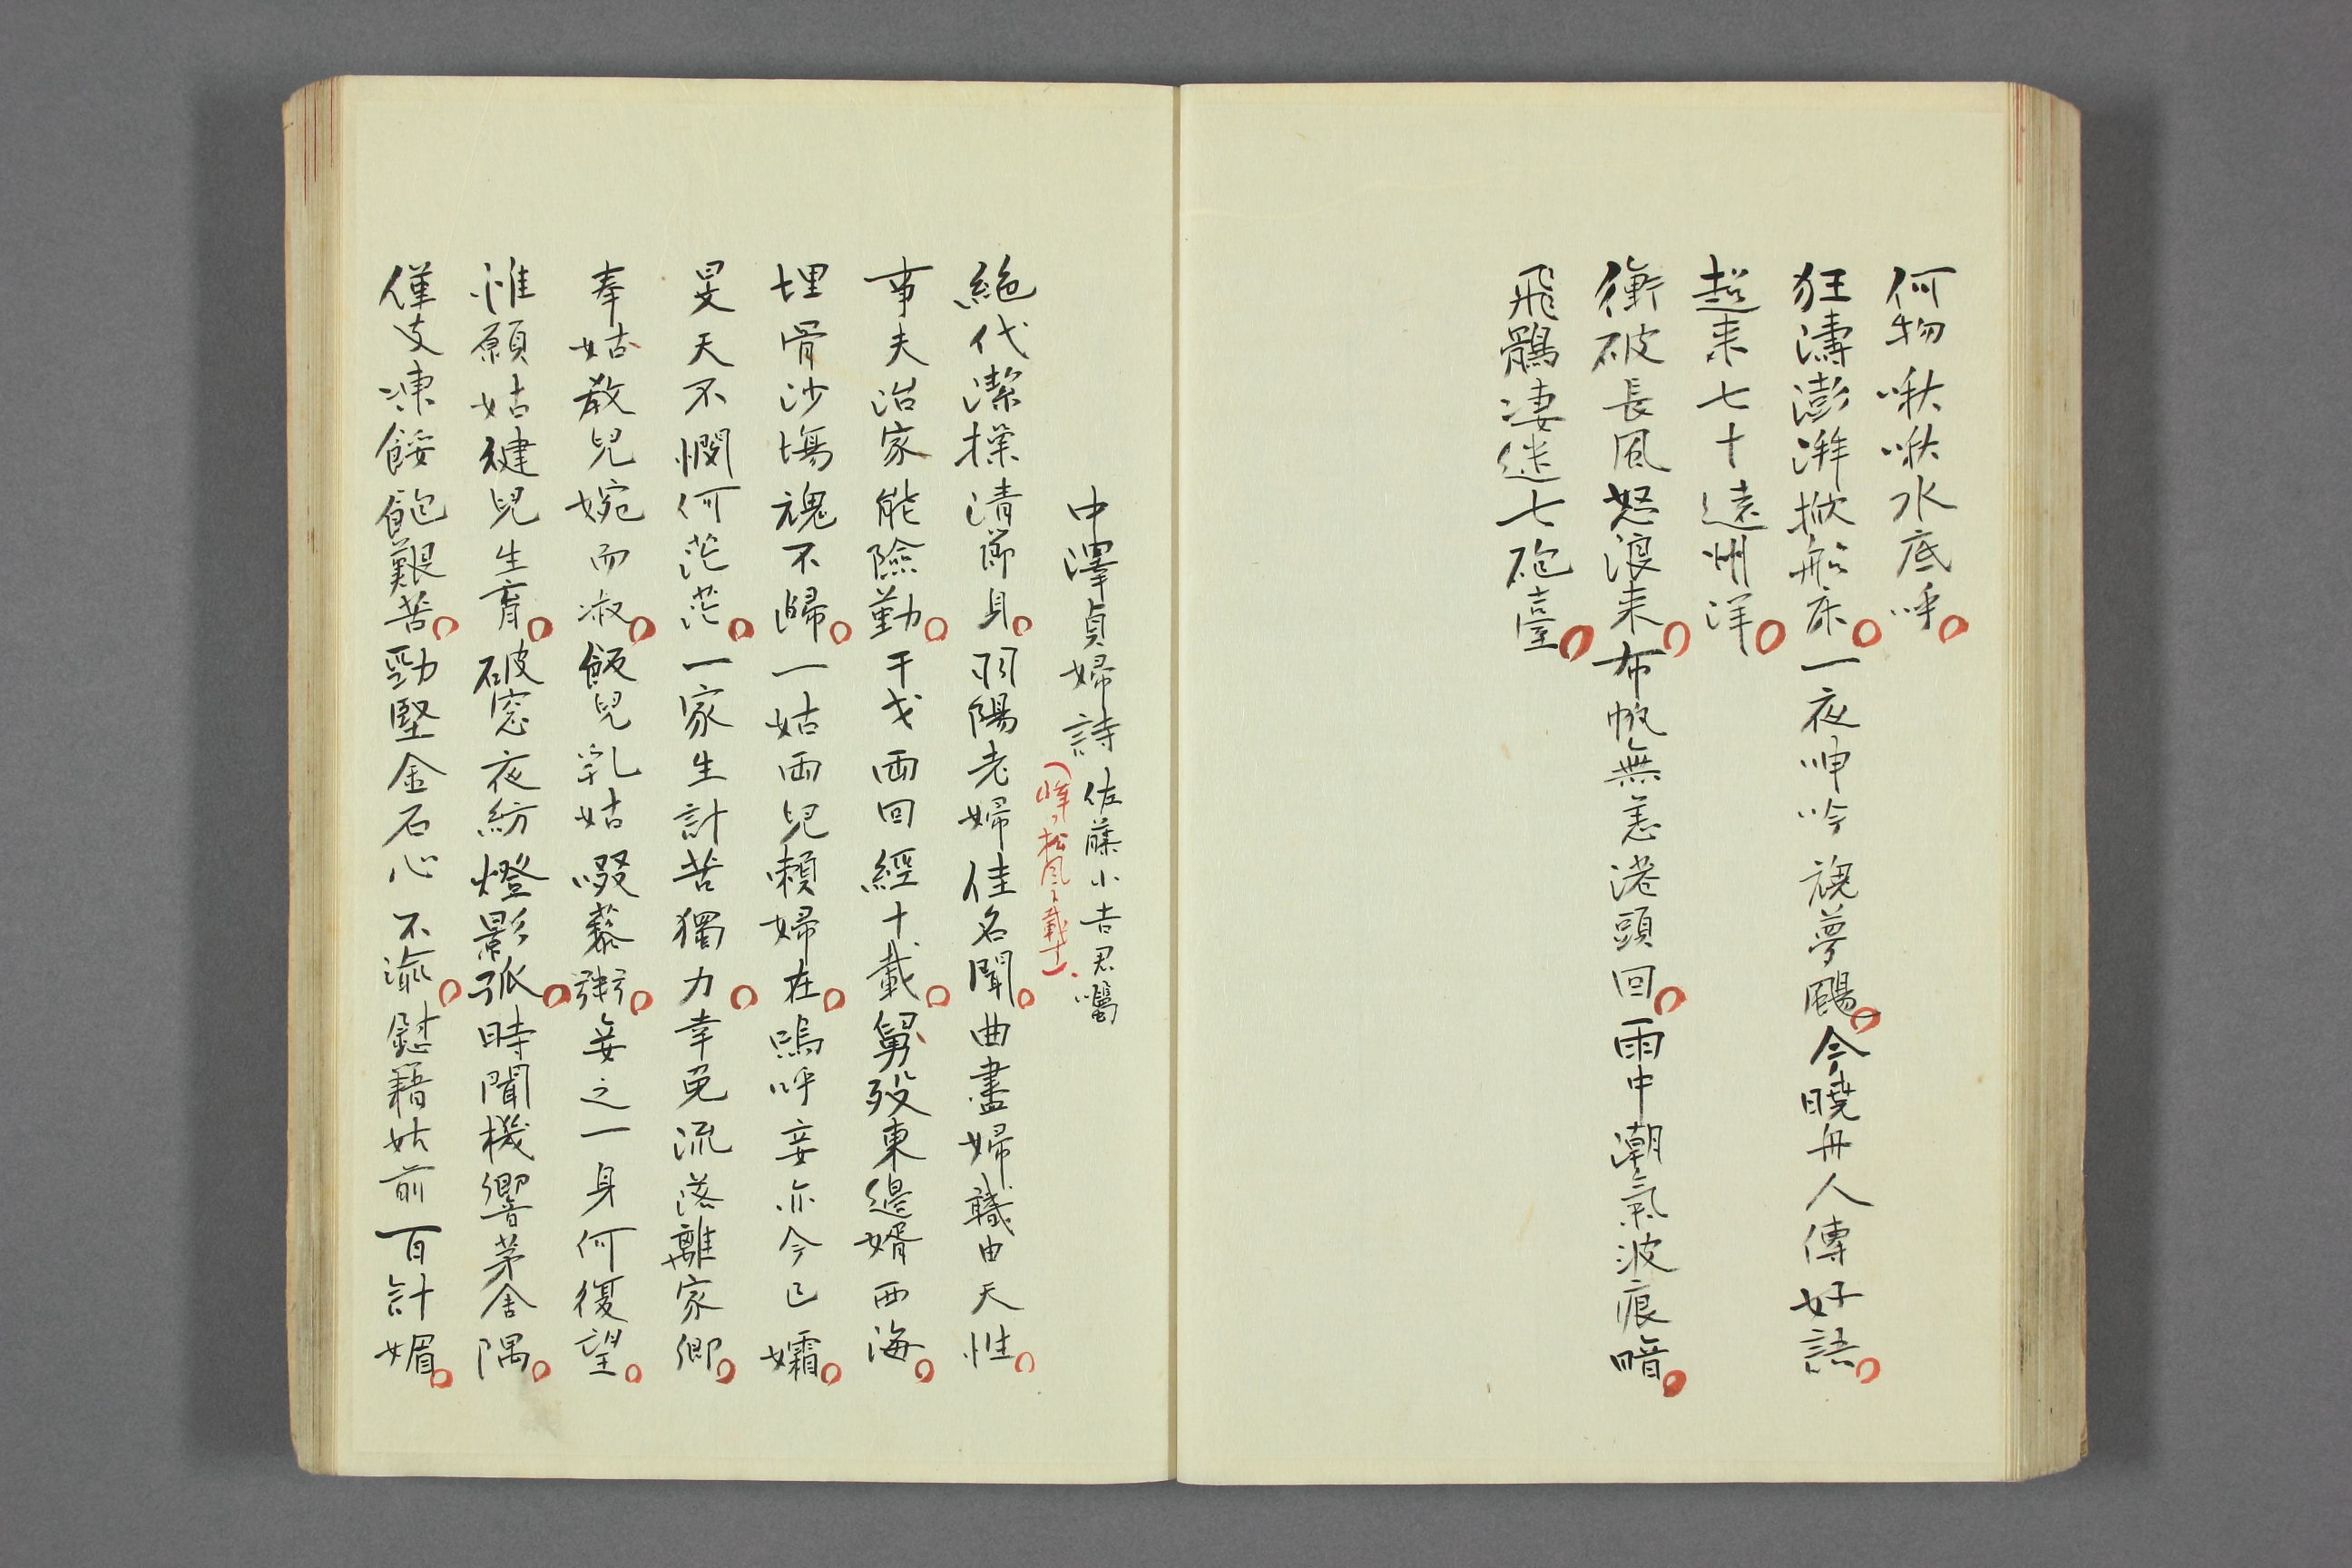 何物啾啾水底呼
狂濤澎湃掀船床一夜呻吟魂夢颺今曉舟人傳好語
超来七十遠州洋
衝破長風怒浪来布帆無恙港頭回雨中潮氣波痕暗
飛鶻凄迷七砲臺
中澤貞婦詩 佐藤小吉君囑
松風ニ載ス
絶代潔操清節身羽陽老婦佳名聞曲盡婦職由天性
事夫治家能險勤干戈両回經十載舅歿東邊婿西海
埋骨沙塲魂不歸一姑両兒賴婦在嗚呼妾亦今已孀
旻天不憫何茫茫一家生計苦獨力幸免流落離家鄉
奉姑敎兒婉而淑飯兒乳姑啜藜粥妾之一身何復望
惟願姑健兒生育破窓夜紡燈影孤時聞機響茅舍隅
僅支凍餒飽艱苦勁堅金石心不渝慰籍姑前百計媚